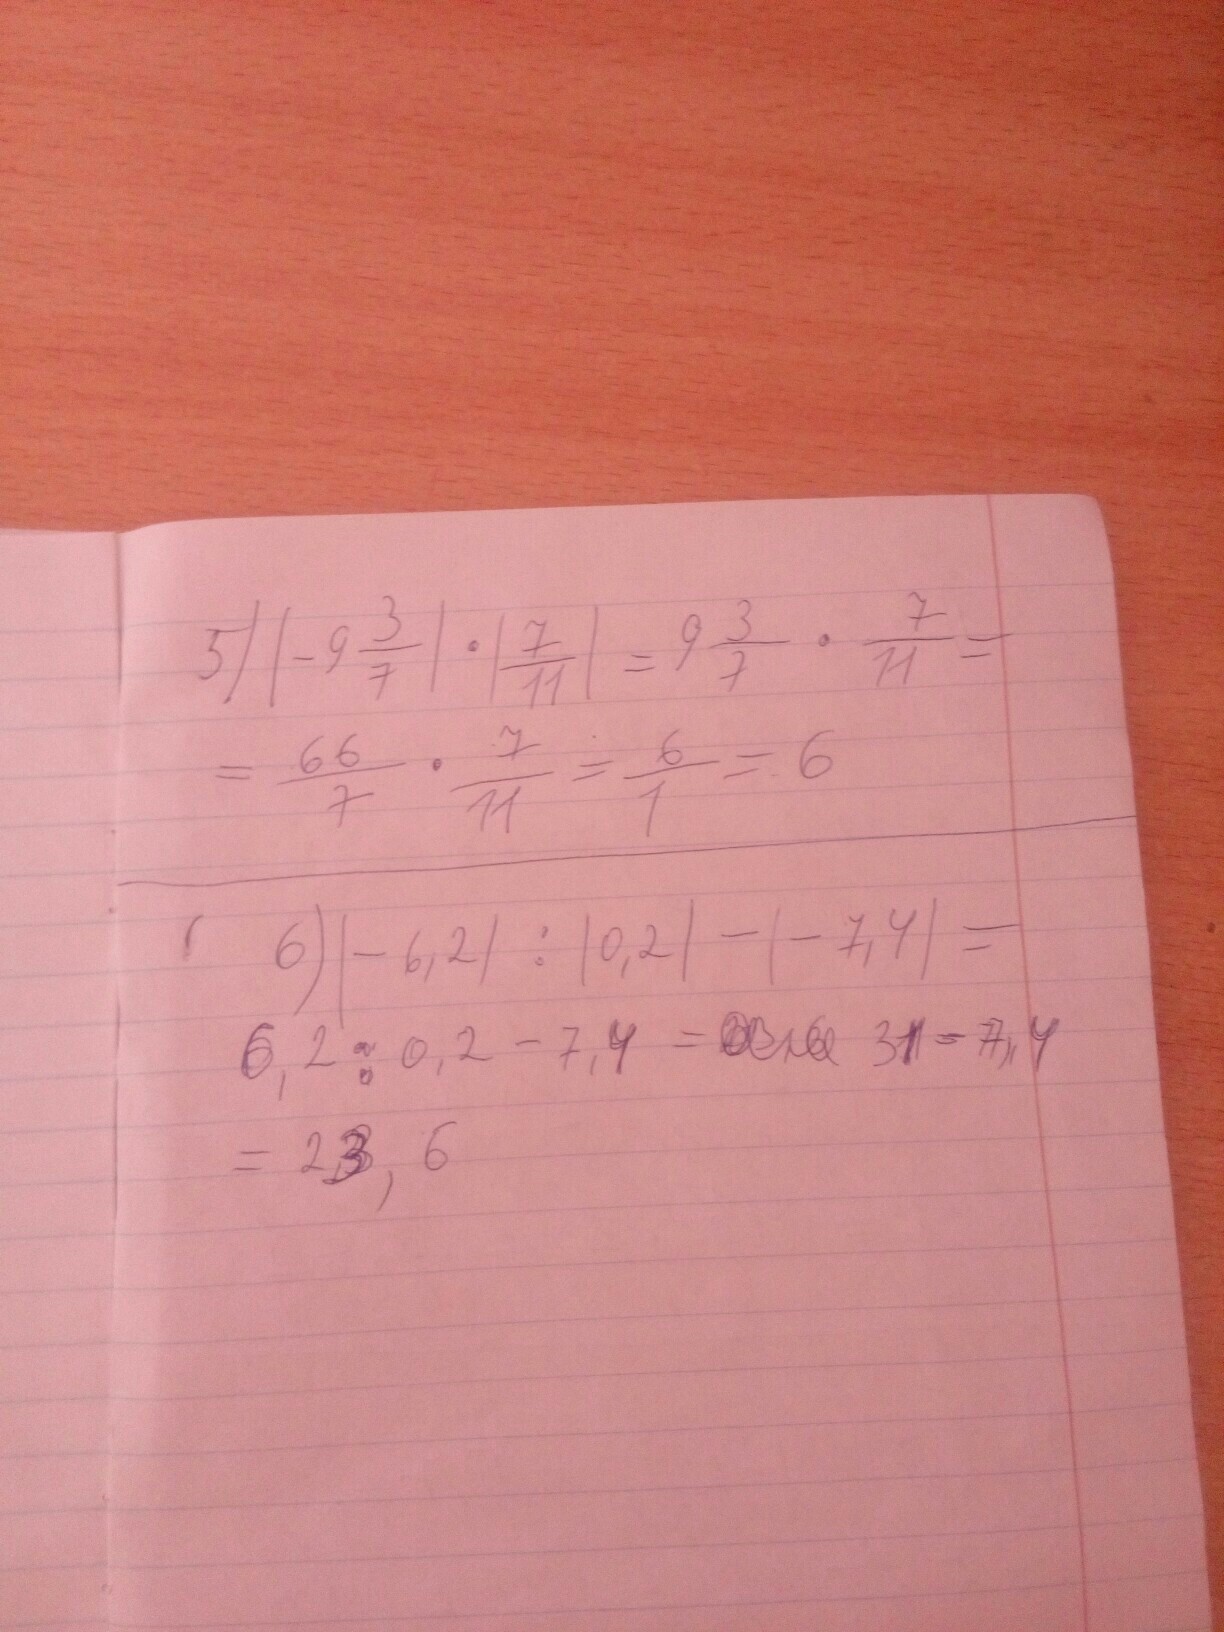 5) |-9 3/7| · |7/11| = 9 3/7 · 7/11 =
= 66/7 · 7/11 = 6/1 = 6
6) |-6,2| : |0,2| - |-7,4| =
6,2 : 0,2 - 7,4 = 31 - 7,4
= 23,6